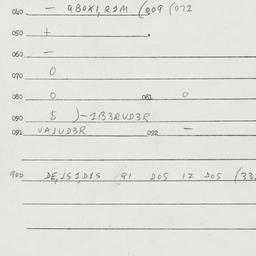 040 — 9B0X1,R2M (009 (072
050 +
060 —
070 0
080 0 081 0
090 $ )-1B3RUD3R
091 VA1UD3R 092 —
900 DE,1S1,D1S 91 DOS 12 DOS (33.